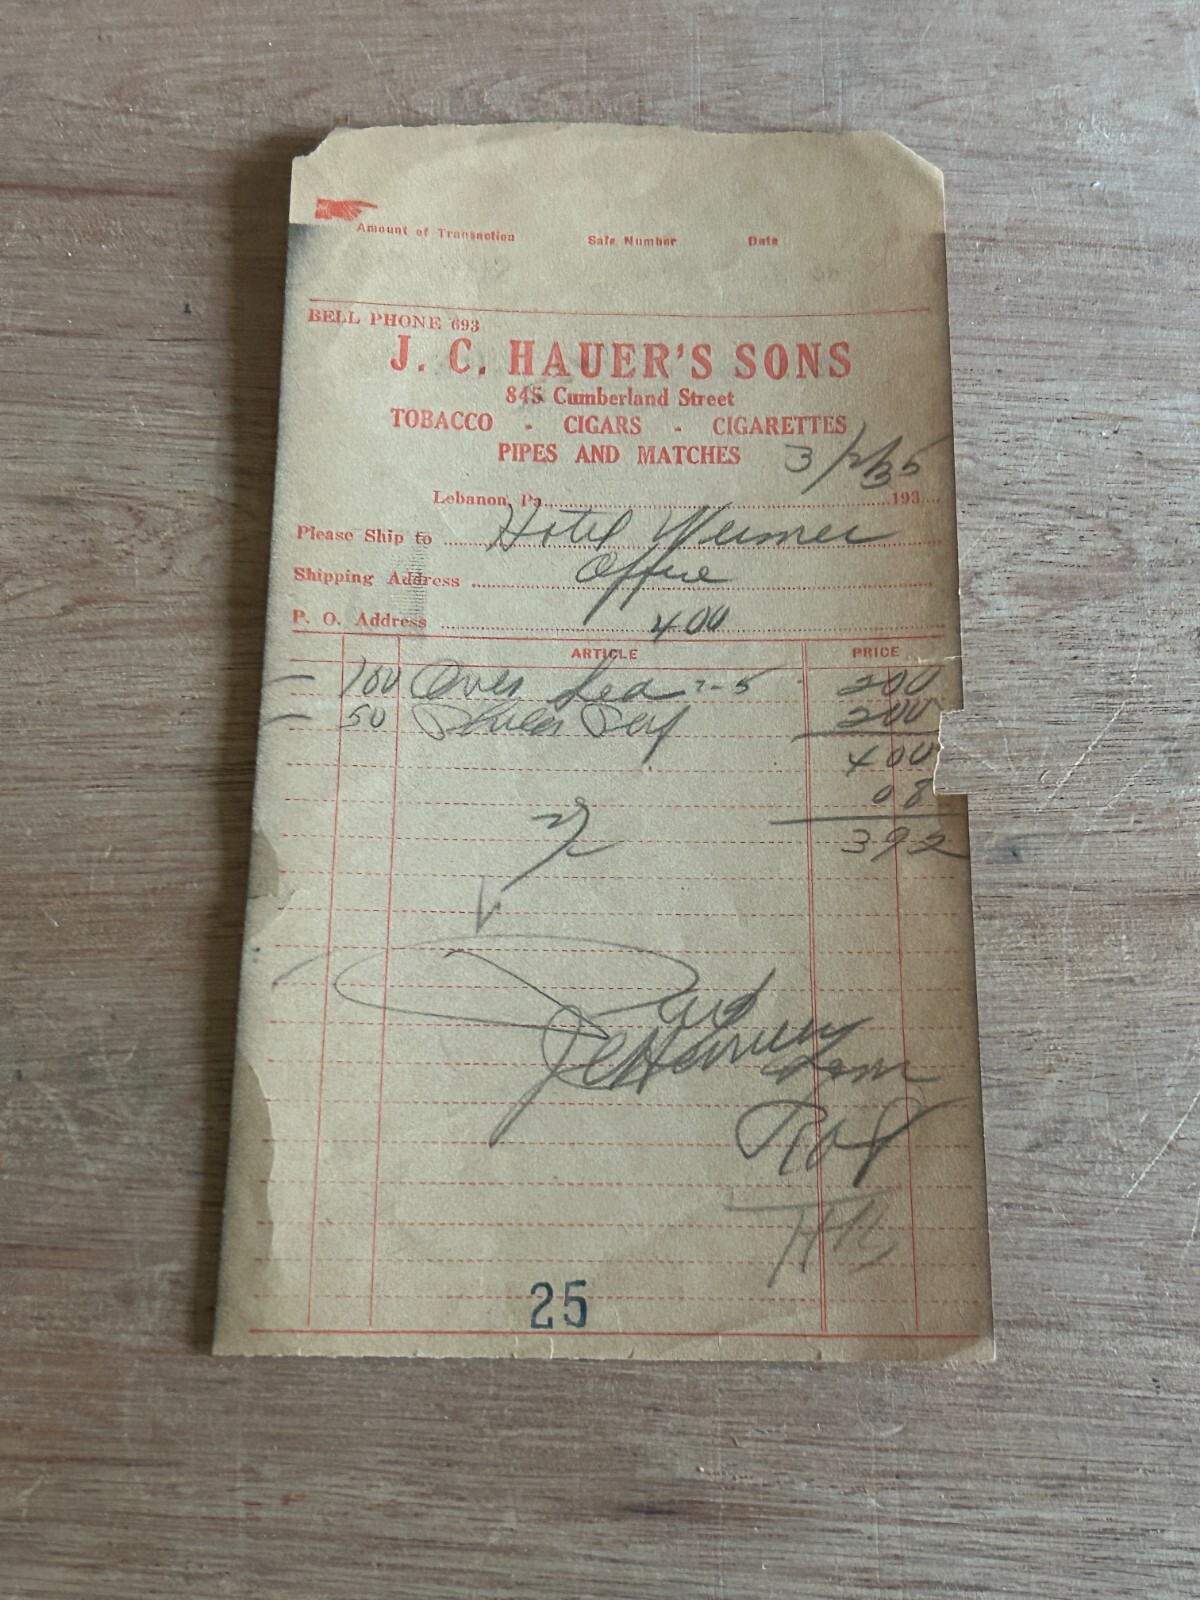 Amount of Transaction Sale Number Date
BELL PHONE 693
J. C. HAUER'S SONS
845 Cumberland Street
TOBACCO - CIGARS - CIGARETTES
PIPES AND MATCHES
3/2/35
Lebanon, Pa. 193
Please Ship to Hotel Weimer
Shipping Address Office
P. O. Address 400
ARTICLE PRICE
100 Over 2-5 200
50 200
400
08
392
Paid
25